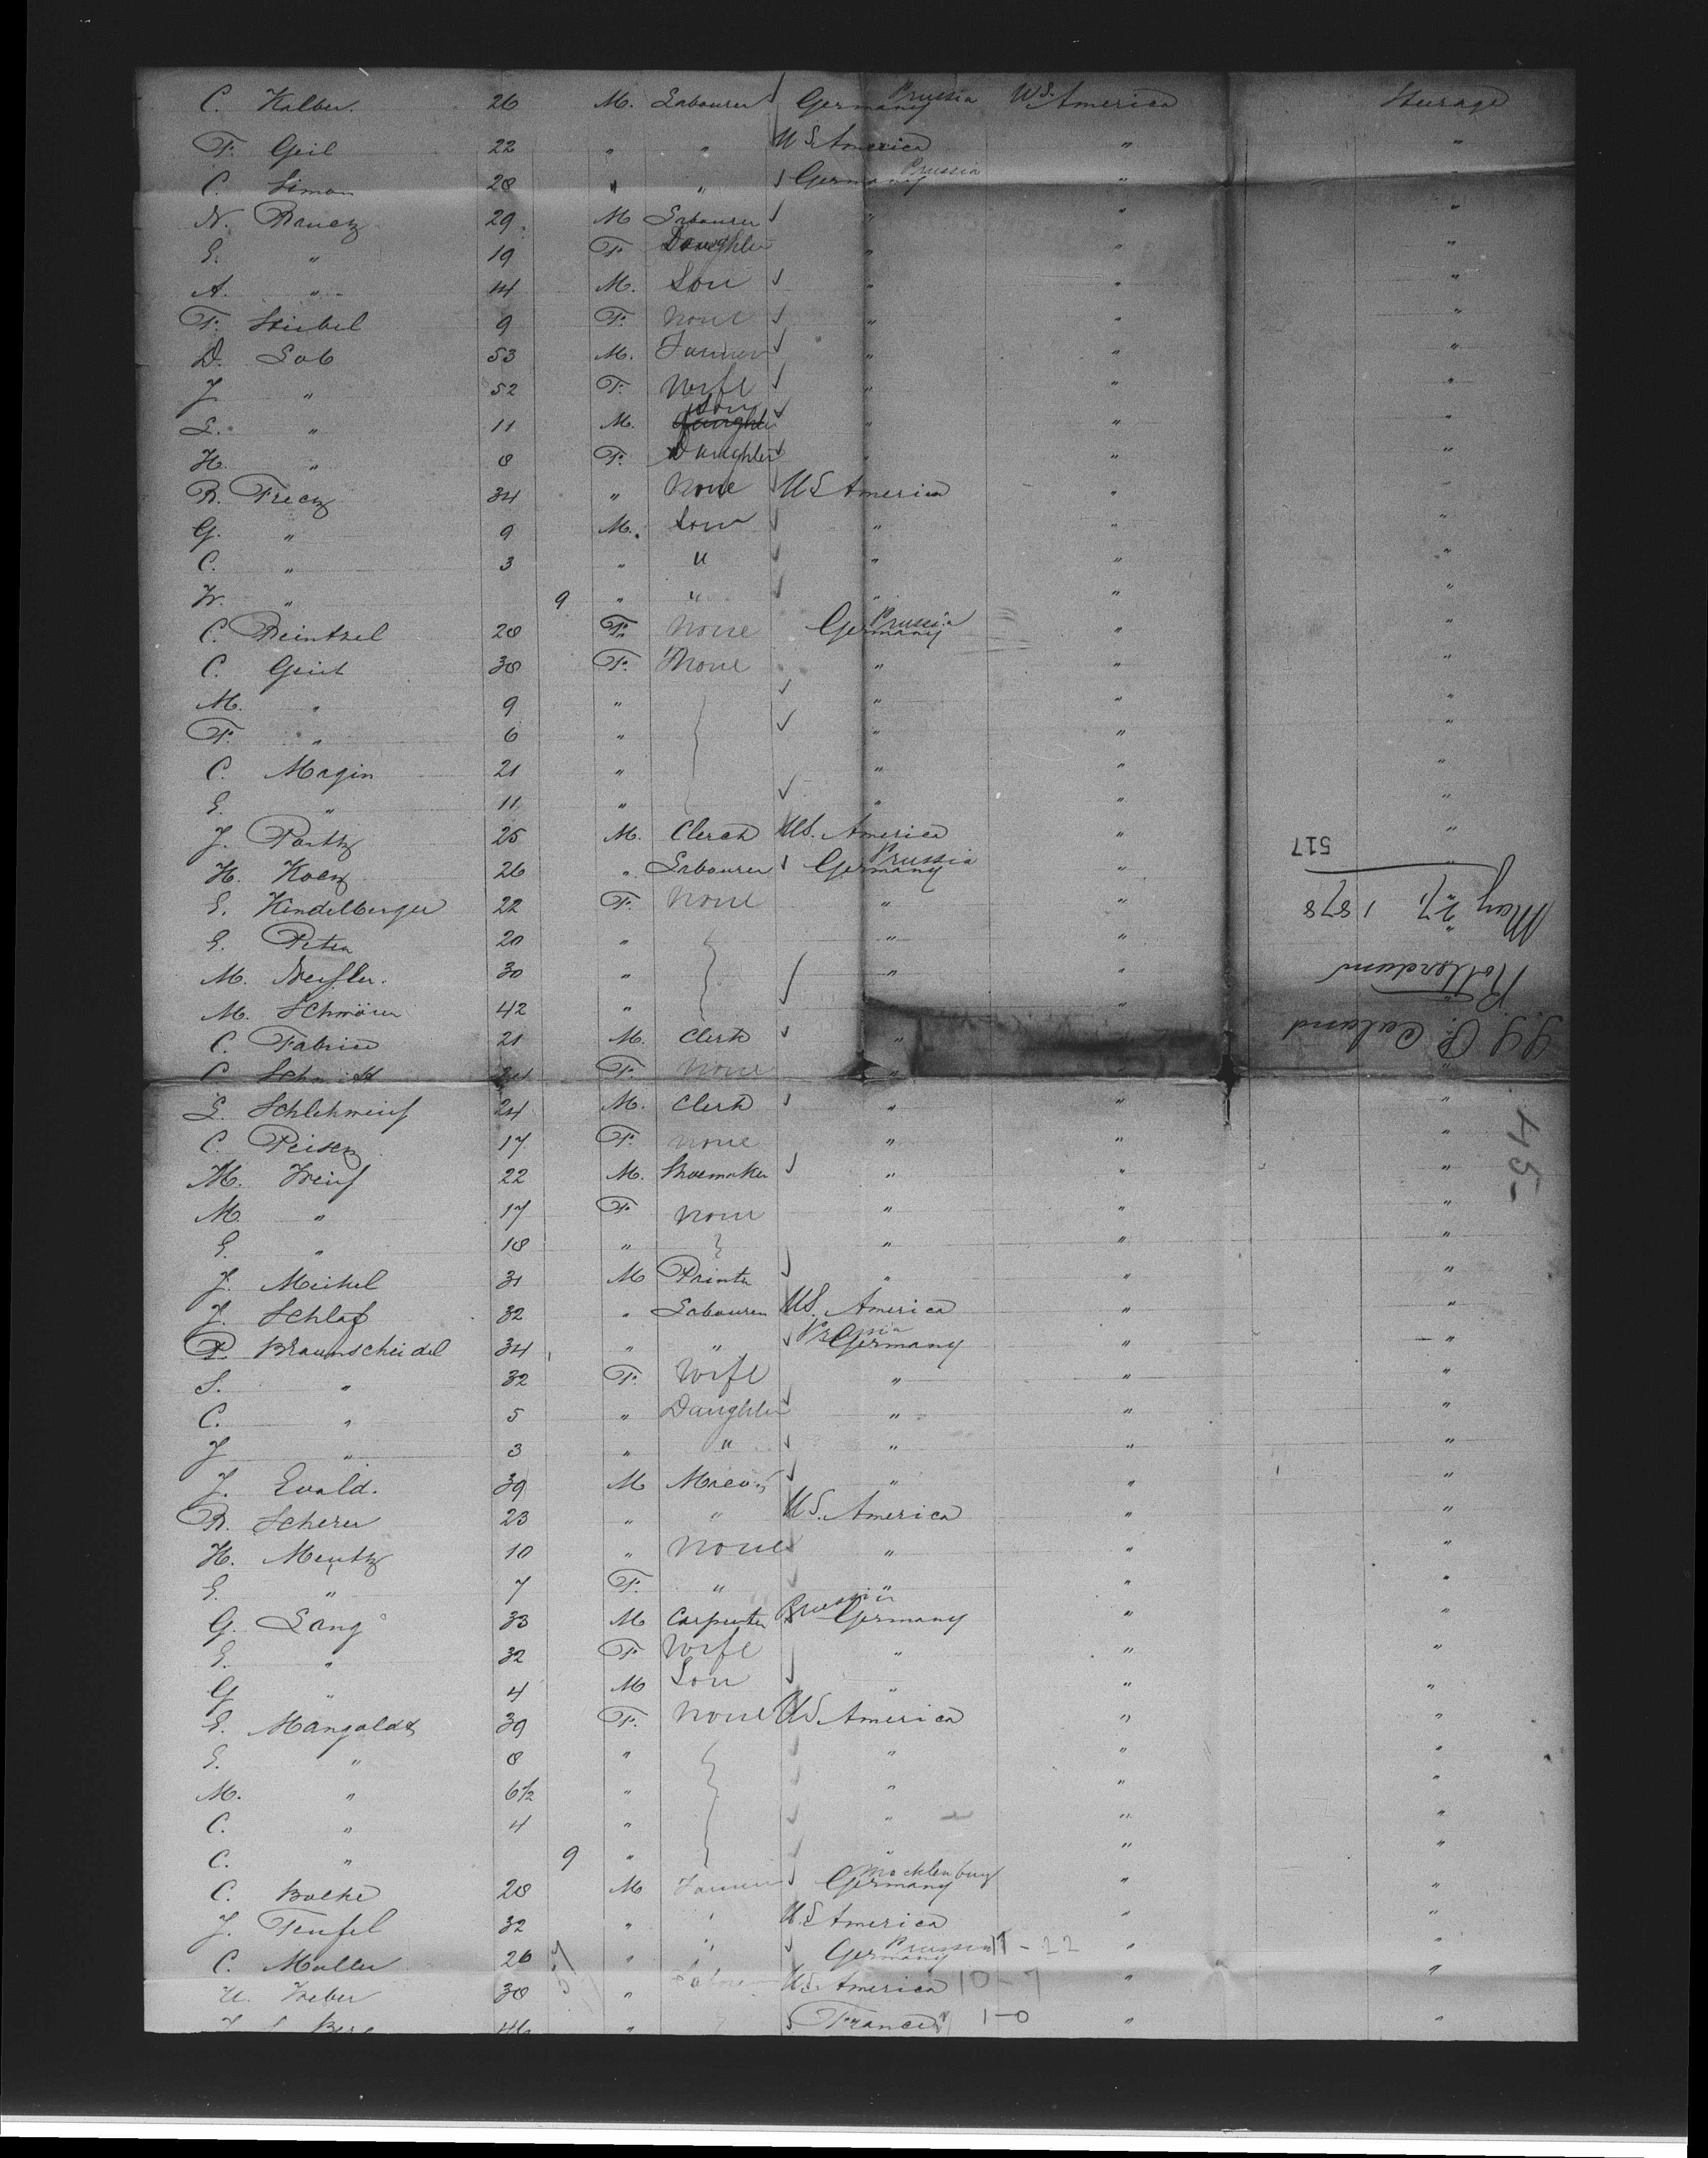 C. Kalber. 26 M. Labourer Germany Prussia U.S. America Steerage
F. Geil 22 " " U S America " "
C. Simon 28 " " Germany Prussia " "
N. 29 M Labourer " " "
E. " 19 F. Daughter " " "
A. " 14 M. Son " " "
F. Stiebel 9 F. None " " "
D. Lob 53 M. Farmer " " "
J. " 52 F. Wife " " "
L. " 11 M. Son " " "
H. " 8 F. Daughter " " "
R. 34 " None U S America " "
G. " 9 M. Son " " "
C. " 3 " " " " "
W. " 9 " " " " "
C. Reintzel 28 F. None Germany Prussia " "
C. 38 F. None " " "
M. " 9 " " " "
F. " 6 " " " "
C. Magin 21 " " " "
E. " 11 " " " "
J. 25 M. Clerck U.S. America " "
H. 26 " Labourer Germany Prussia " "
E. Kindelberger 22 F. None " " "
E. Peter 20 " " " "
M. 30 " " " "
M. 42 " " " "
C. 21 M. Clerk " " "
C. Schmitt F. None " "
L. 24 M. Clerk " " "
C. 17 F. None " " "
M. 22 M. Shoemaker " " "
M " 17 F. None " " "
E. " 18 " " " "
J. Meikel 31 M Printer " " "
J. Schlaf 32 " Labourer U.S. America " "
P. Braunscheidel 34 " " Prussia Germany " "
S. " 32 F. Wife " " "
C. " 5 " Daughter " " "
J " 3 " " " " "
J. Ewald. 39 M " " "
R. Scherer 23 " " U.S. America " "
H. Mentz 10 " None " " "
E. " 7 F. " " " "
G. Lang 33 M Carpenter Prussia Germany " "
E. " 32 F. Wife " " "
G " 4 M Son " " "
E. Mangoldt 39 F. None U S America " "
E. " 8 " " " "
M. " 6½ " " " "
C. " 4 " " " "
C. " 9 " " " "
C. Bolke 28 M Farmer Germany Mecklenburg " "
J. Teufel 32 " " U.S America " "
C. Muller 26 " " Germany Prussia 11-22 " "
Weber 30 " U.S. America 10-7 " "
Berg 46 " France 1-0 " "
S.S. P. Caland
Rotterdam
May 27, 1878
517
45-